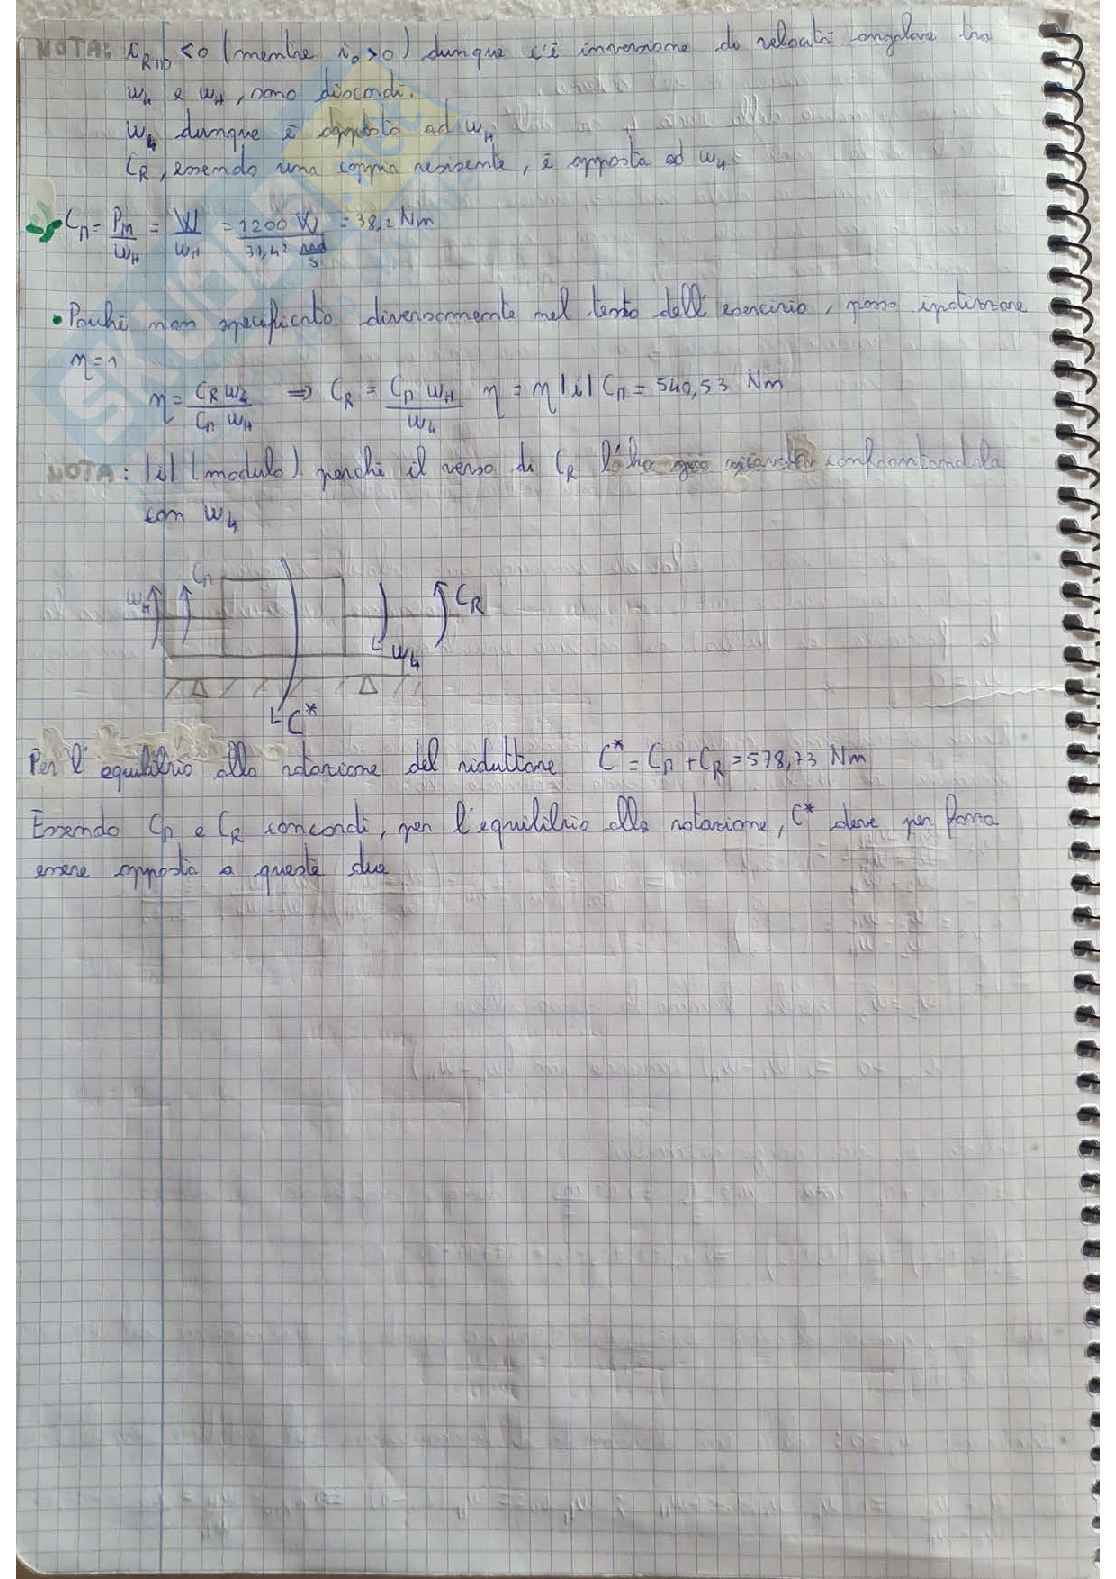 NOTA: i_RID <0 (mentre i_0 >0) dunque c'è inversione di velocità angolare tra
ω_4 e ω_H, sono discordi.
ω_4 dunque è opposto ad ω_H
C_R, essendo una coppia resistente, è opposta ad ω_4
C_M = P_m/ω_H = W/ω_H = 1200 W / 31,42 rad/s = 38,2 Nm
• Poiché non specificato diversamente nel testo dell'esercizio, posso ipotizzare
η=1
η = C_R ω_4 / C_M ω_H ⇒ C_R = C_M ω_H / ω_4 η = η |i| C_M = 540,53 Nm
NOTA: |i| (modulo) perché il verso di C_R l'ho già ricavato confrontandola
con ω_4
ω_H C_M C_R
ω_4
C*
Per l'equilibrio alla rotazione del riduttore C* = C_M + C_R = 578,73 Nm
Essendo C_M e C_R concordi, per l'equilibrio alla rotazione, C* deve per forza
essere opposta a queste due